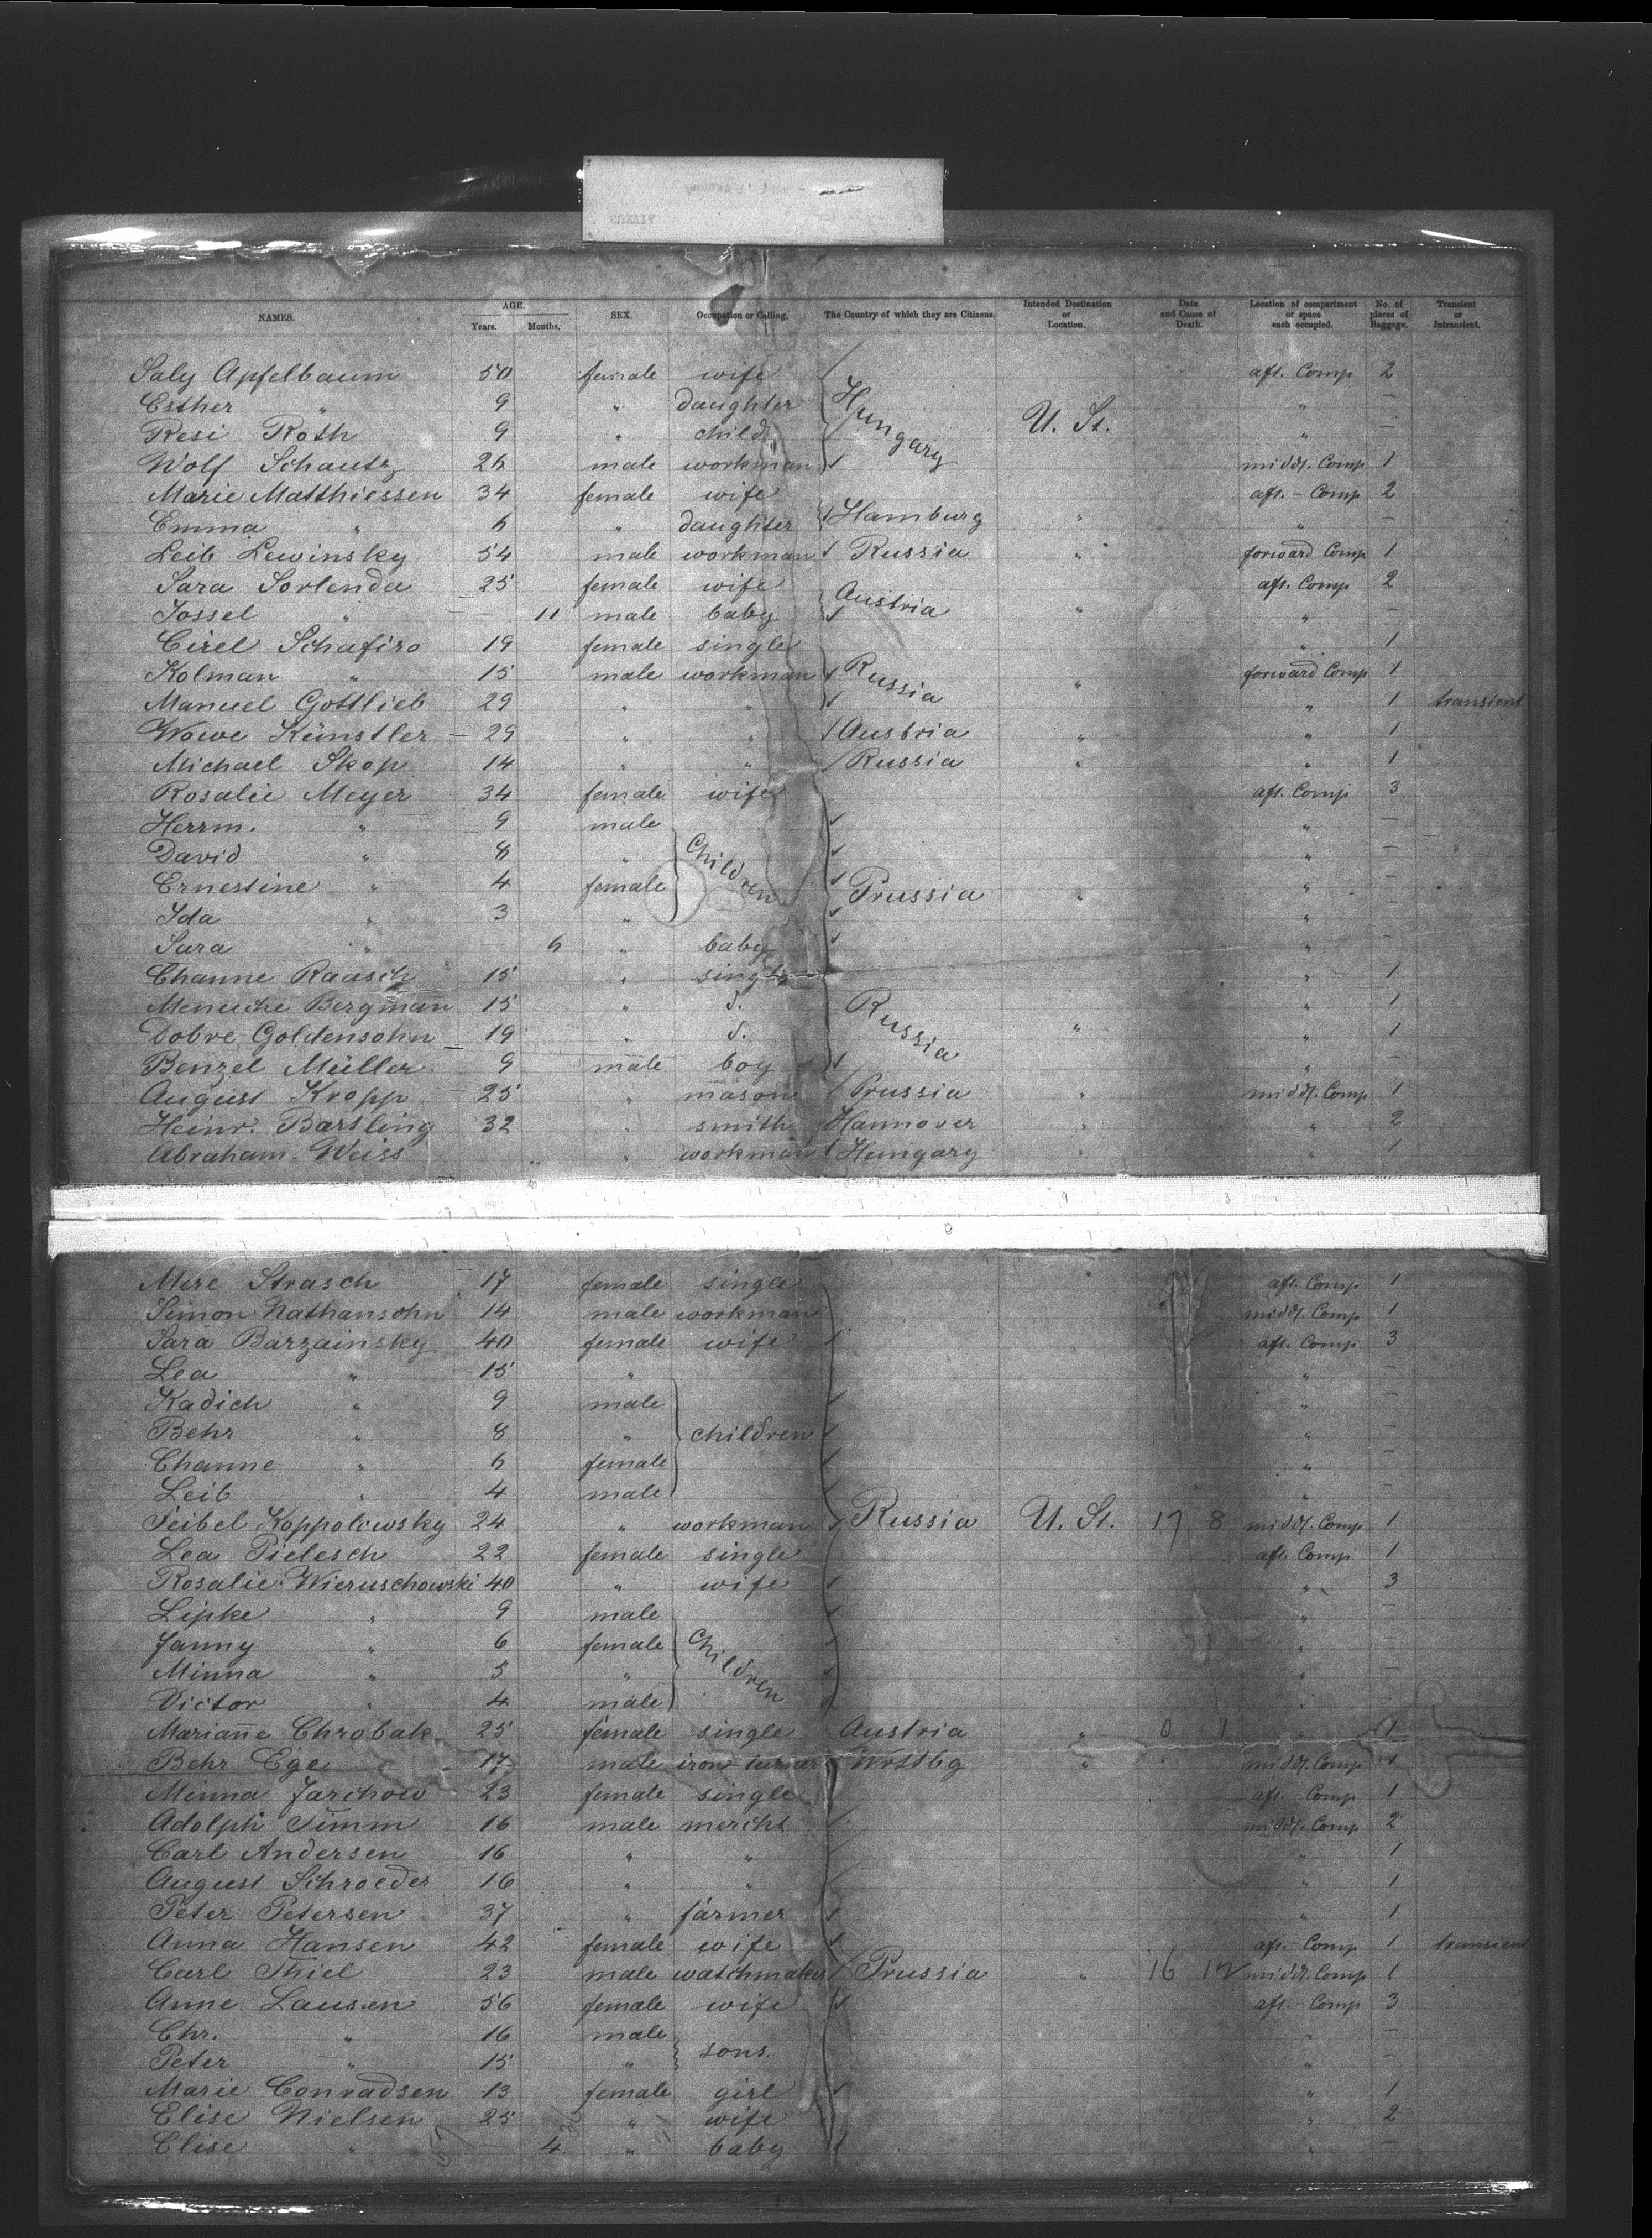 NAMES. AGE. Years. Months. SEX. Occupation or Calling. The Country of which they are Citizens. Intended Destination or Location. Date and Cause of Death. Location of compartment or space each occupied. No. of pieces of Baggage. Transient or Intransient.
Saly Apfelbaum 50 female wife aft. Comp 2
Esther " 9 " daughter " —
Resi Roth 9 " child Hungary U. St. " —
Wolf Schautz 26 male workman middl. Comp 1
Marie Matthiessen 34 female wife aft. - Comp 2
Emma " 6 " daughter Hamburg " " —
Leib Lewinsky 54 male workman Russia " forward Comp 1
Sara Sorlenda 25 female wife aft. Comp 2
Jossel " — 11 male baby Austria " " —
Cirel Schafiro 19 female single " 1
Kolman " 15 male workman Russia " forward Comp 1
Manuel Gottlieb 29 " " " 1 transient
Wowe Künstler — 29 " " Austria " " 1
Michael Skop 14 " " Russia " " 1
Rosalie Meyer 34 female wife aft. Comp 3
Herrm. " 9 male " —
David " 8 " Children " —
Ernestine " 4 female Prussia " " —
Ida " 3 " " —
Sara " 6 " baby " —
Channe Raasch 15 " single " 1
Menuche Bergman 15 " d. Russia " 1
Dobre Goldensohn 19 " d. " " 1
Benzel Müller 9 male boy " —
August Kropp 25 " mason Prussia " middl. Comp 1
Heinr. Bartling 32 " smith Hannover " " 2
Abraham Weiss " workman Hungary " " 1
Mere Strasch 17 female single aft. Comp 1
Simon Nathansohn 14 male workman middl. Comp 1
Sara Barzainsky 40 female wife aft. Comp 3
Lea " 15 " " —
Kadich " 9 male " —
Behr " 8 " children " —
Channe " 6 female " —
Leib " 4 male " —
Feibel Koppolowsky 24 " workman Russia U. St. 17 8 middl. Comp 1
Lea Pielesch 22 female single aft. Comp 1
Rosalie Wieruschowski 40 " wife " 3
Lipke " 9 male " —
Fanny " 6 female Children " —
Minna " 5 " " —
Victor " 4 male " —
Marianne Chrobak 25 female single Austria " 0 1 " 1
Behr Ege 17 male iron turner Wrttbg " middl. Comp 1
Minna Jarchow 23 female single aft. Comp 1
Adolph Timm 16 male mercht middl. Comp 2
Carl Andersen 16 " " " 1
August Schroeder 16 " " " 1
Peter Petersen 37 " farmer " 1
Anna Hansen 42 female wife aft. - Comp 1 transient
Carl Thiel 23 male watchmaker Prussia " 16 12 middl. Comp 1
Anne Lausen 56 female wife aft. - Comp 3
Chr. " 16 male " —
Peter " 15 " sons. " —
Marie Conradsen 13 female girl " 1
Elise Nielsen 25 " wife " 2
Elise " — 4 " baby " —